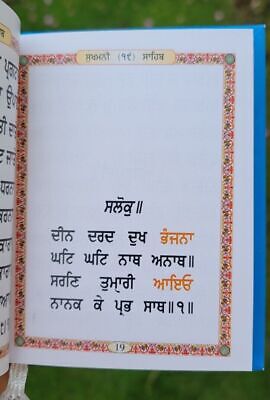 ਸੁਖਮਨੀ (੧੯) ਸਾਹਿਬ
ਸਲੋਕੁ॥
ਦੀਨ ਦਰਦ ਦੁਖ ਭੰਜਨਾ
ਘਟਿ ਘਟਿ ਨਾਥ ਅਨਾਥ॥
ਸਰਣਿ ਤੁਮ੍ਹਾਰੀ ਆਇਓ
ਨਾਨਕ ਕੇ ਪ੍ਰਭ ਸਾਥ॥੧॥
19